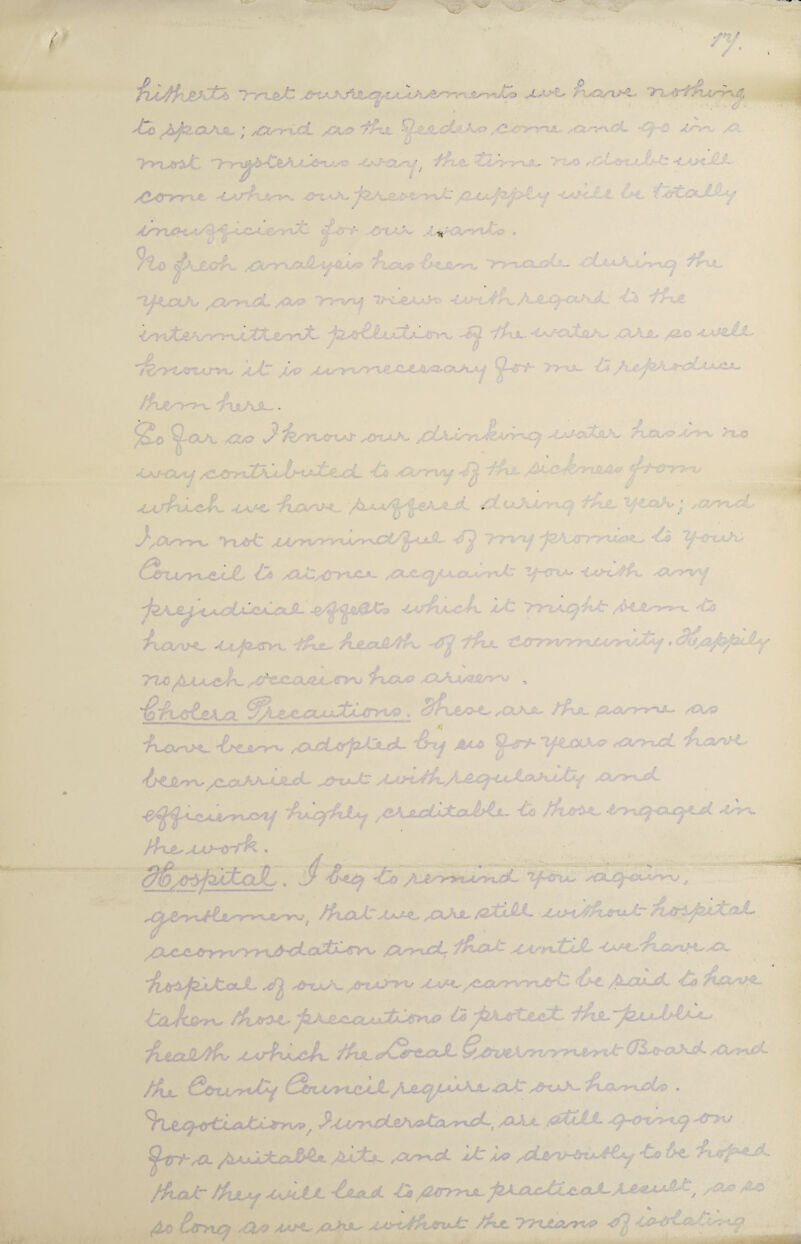 17.
hitherto met our requirements we have nothing
to spare; and as the feeders come and go in a
most mysterious way, the time no doubt will
come when our present supply will be totally
insufficient for our wants.
No fresh analysis has been made during the
year and as my views with regard to the
intermittent pollution of the water are so well
known it is unnecessary for me to reproduce
them here.
So far as I know our drinking water has in no
way contributed to any of the sickness from
which we have suffered during the year; and
I am not unmindful of my promise to your
Council to at once acquaint you with any
prejudicial effects which it might seem to
have upon the health of the community. Happily
no such occasion has arisen.
Cholera Precautions. These are the same as
have been adopted by us for years and have
been carried out with regularity and
efficiency highly creditable to those engaged in
the work.
Hospital. I beg to remind you again,
gentlemen, that we are still without hospital
accommodation and that until we have a
hospital of our own we cannot be said to have
taken those precautions to protect the public
health which the Local Government Board and
the County Council require at our hands.
Negotiations, I understand, are still going on
for a suitable site and it is devoutly to be hoped
that they will lead to some practical result, as so
so long as we are without the means of isolating